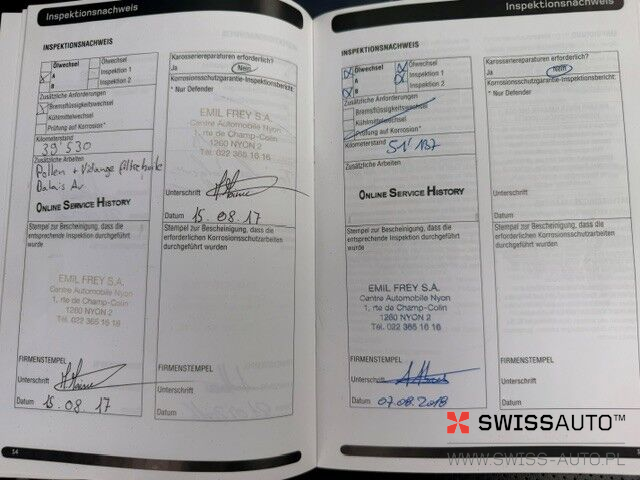 Inspektionsnachweis
INSPEKTIONSNACHWEIS
Ölwechsel
A
B
Inspektion 1
Inspektion 2
Zusätzliche Anforderungen
Bremsflüssigkeitswechsel
Kühlmittelwechsel
Prüfung auf Korrosion*
Kilometerstand
39'530
Zusätzliche Arbeiten
Pollen + Vidange
Balais Av
ONLINE SERVICE HISTORY
Stempel zur Bescheinigung, dass die
entsprechende Inspektion durchgeführt
wurde
EMIL FREY S.A.
Centre Automobile Nyon
1, rte de Champ-Colin
1260 NYON 2
Tél. 022 365 16 16
FIRMENSTEMPEL
Unterschrift
Datum 15.08.17
Karosseriereparaturen erforderlich?
Ja Nein
Korrosionsschutzgarantie-Inspektionsbericht
* Nur Defender
EMIL FREY S.A.
Centre Automobile Nyon
1, rte de Champ-Colin
1260 NYON 2
Tél. 022 365 16 16
Unterschrift
Datum 15.08.17
Stempel zur Bescheinigung, dass die
erforderlichen Korrosionsschutzarbeiten
durchgeführt wurden
FIRMENSTEMPEL
Unterschrift
Datum
54
Inspektionsnachweis
INSPEKTIONSNACHWEIS
Ölwechsel
A
B
Inspektion 1
Inspektion 2
Zusätzliche Anforderungen
Bremsflüssigkeitswechsel
Kühlmittelwechsel
Prüfung auf Korrosion*
Kilometerstand 51'137
Zusätzliche Arbeiten
ONLINE SERVICE HISTORY
Stempel zur Bescheinigung, dass die
entsprechende Inspektion durchgeführt
wurde
EMIL FREY S.A.
Centre Automobile Nyon
1, rte de Champ-Colin
1260 NYON 2
Tél. 022 365 16 16
FIRMENSTEMPEL
Unterschrift
Datum 07.08.2018
Karosseriereparaturen erforderlich?
Ja Nein
Korrosionsschutzgarantie-Inspektionsbericht
* Nur Defender
Unterschrift
Datum
Stempel zur Bescheinigung, dass die
erforderlichen Korrosionsschutzarbeiten
durchgeführt wurden
FIRMENSTEMPEL
Unterschrift
Datum
SWISSAUTO™
WWW.SWISS-AUTO.PL